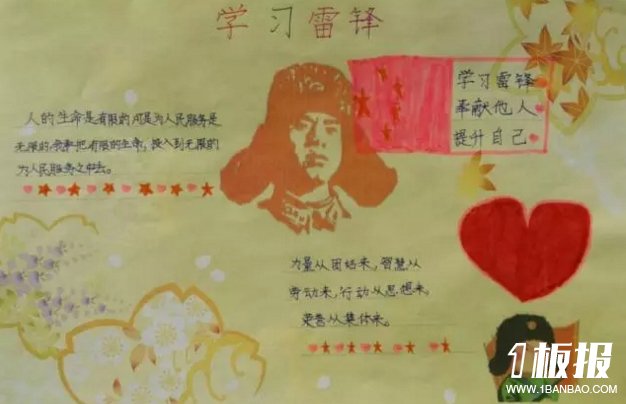 学习雷锋
学习雷锋
奉献他人
提升自己
人的生命是有限的可是为人民服务是
无限的,我要把有限的生命,投入到无限的
为人民服务之中去。
力量从团结来,智慧从
劳动来,行动从思想来,
荣誉从集体来。
1板报
WWW.1BANBAO.COM